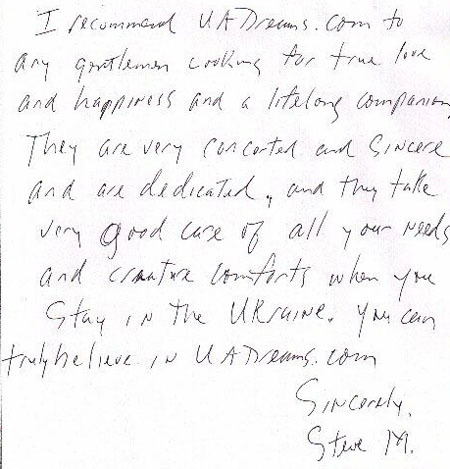 I recommend UADreams.com to
any gentlemen looking for true love
and happiness and a lifelong companion
They are very concerted and sincere
and are dedicated, and they take
very good care of all your needs
and creature comforts when you
stay in the UKRAINE. You can
truly believe in UADreams.com
Sincerely,
Steve M.